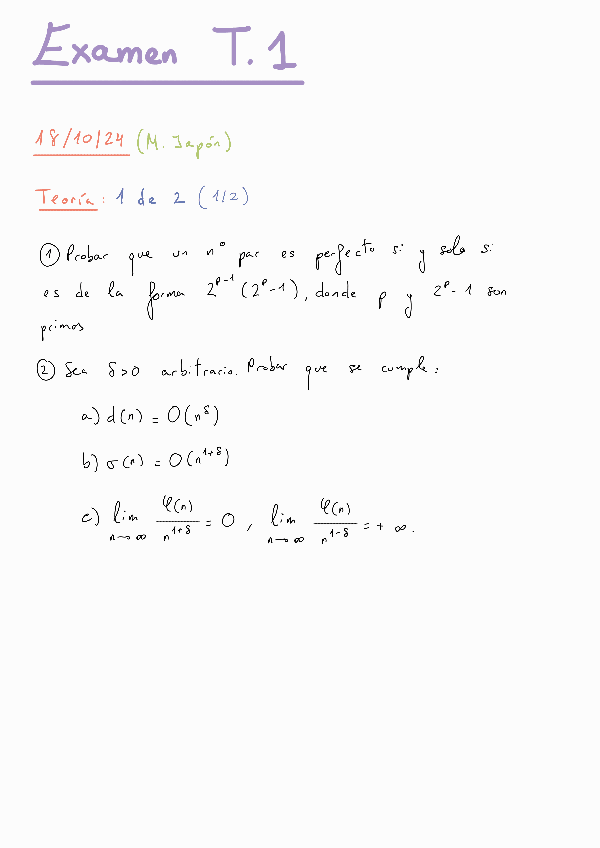 Examen T.1
18/10/24 (M. Japón)
Teoría: 1 de 2 (1/2)
① Probar que un nº par es perfecto si y solo si
es de la forma 2^{p-1} (2^p - 1), donde p y 2^p - 1 son
primos
② Sea δ>0 arbitrario. Probar que se cumple:
a) d(n) = O(n^δ)
b) σ(n) = O(n^{1+δ})
c) lim_{n→∞} φ(n)/n^{1+δ} = 0 , lim_{n→∞} φ(n)/n^{1-δ} = +∞.